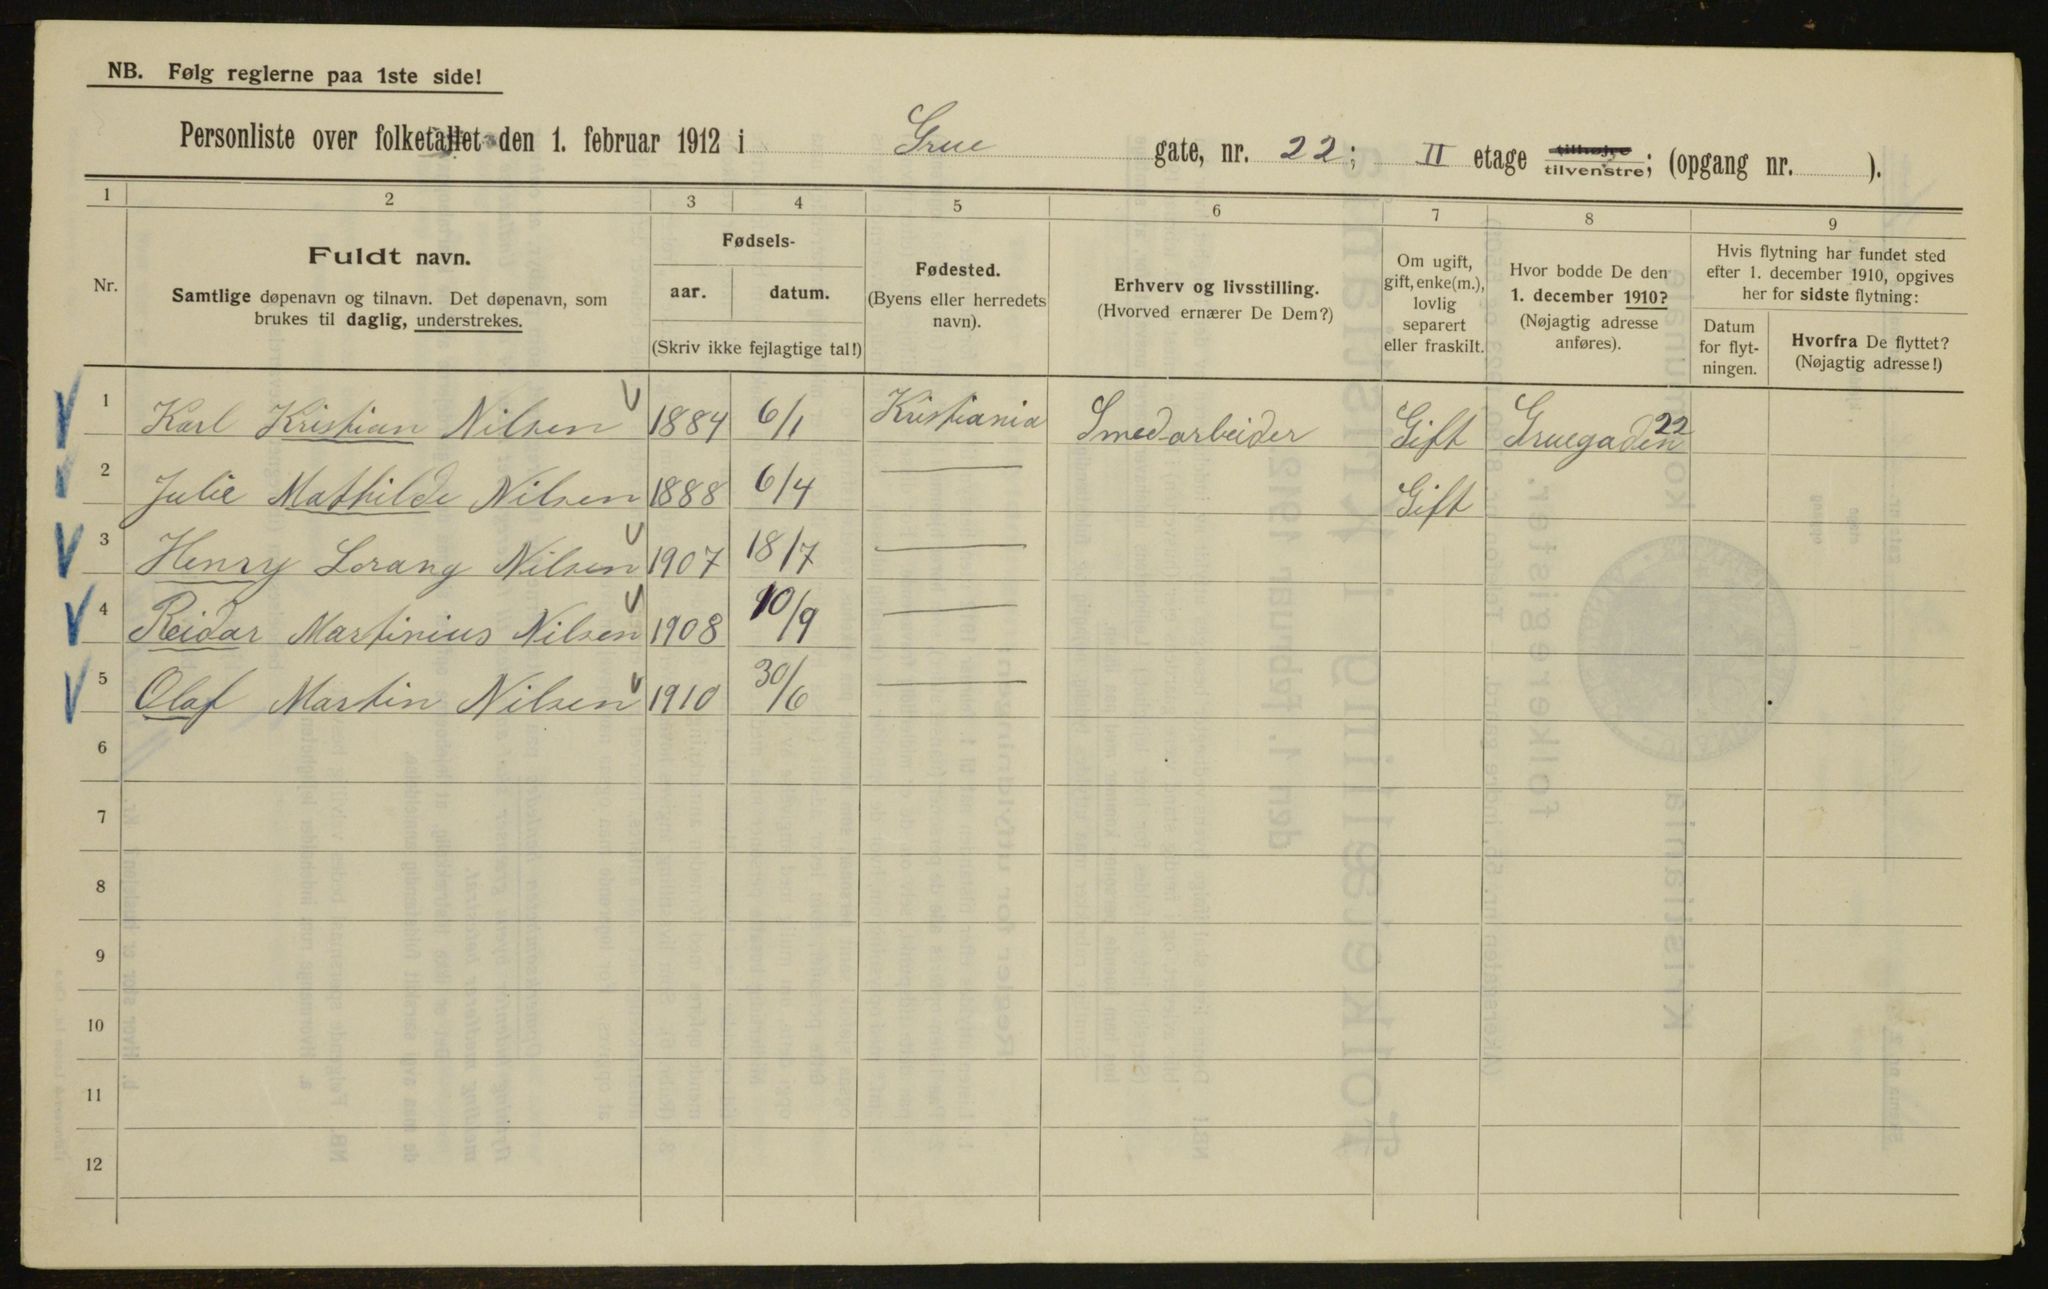 NB. Følg reglerne paa 1ste side!
Personliste over folketallet den 1. februar 1912 i Grue gate, nr. 22; II etage tilhøjre tilvenstre; (opgang nr. ).
1 2 3 4 5 6 7 8 9
Nr.
Fuldt navn.
Samtlige døpenavn og tilnavn. Det døpenavn, som
brukes til daglig, understrekes.
Fødsels-
aar. datum.
(Skriv ikke fejlagtige tal!)
Fødested.
(Byens eller herredets
navn).
Erhverv og livsstilling.
(Hvorved ernærer De Dem?)
Om ugift,
gift, enke(m.),
lovlig
separert
eller fraskilt.
Hvor bodde De den
1. december 1910?
(Nøjagtig adresse
anføres).
Hvis flytning har fundet sted
efter 1. december 1910, opgives
her for sidste flytning:
Datum
for flyt-
ningen.
Hvorfra De flyttet?
(Nøjagtig adresse!)
1 Karl Kristian Nilsen 1884 6/1 Kristiania Smedarbeider Gift Gruegaden 22
2 Julie Mathilde Nilsen 1888 6/4 — Gift
3 Henry Lorang Nilsen 1907 18/7 —
4 Reidar Martinius Nilsen 1908 10/9 —
5 Olaf Martin Nilsen 1910 30/6 —
6
7
8
9
10
11
12